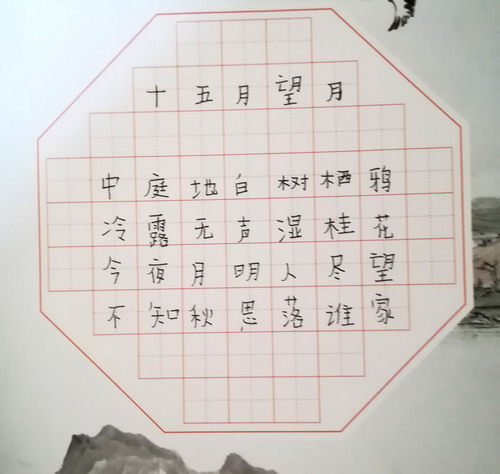 十五月望月
中庭地白树栖鸦
冷露无声湿桂花
今夜月明人尽望
不知秋思落谁家